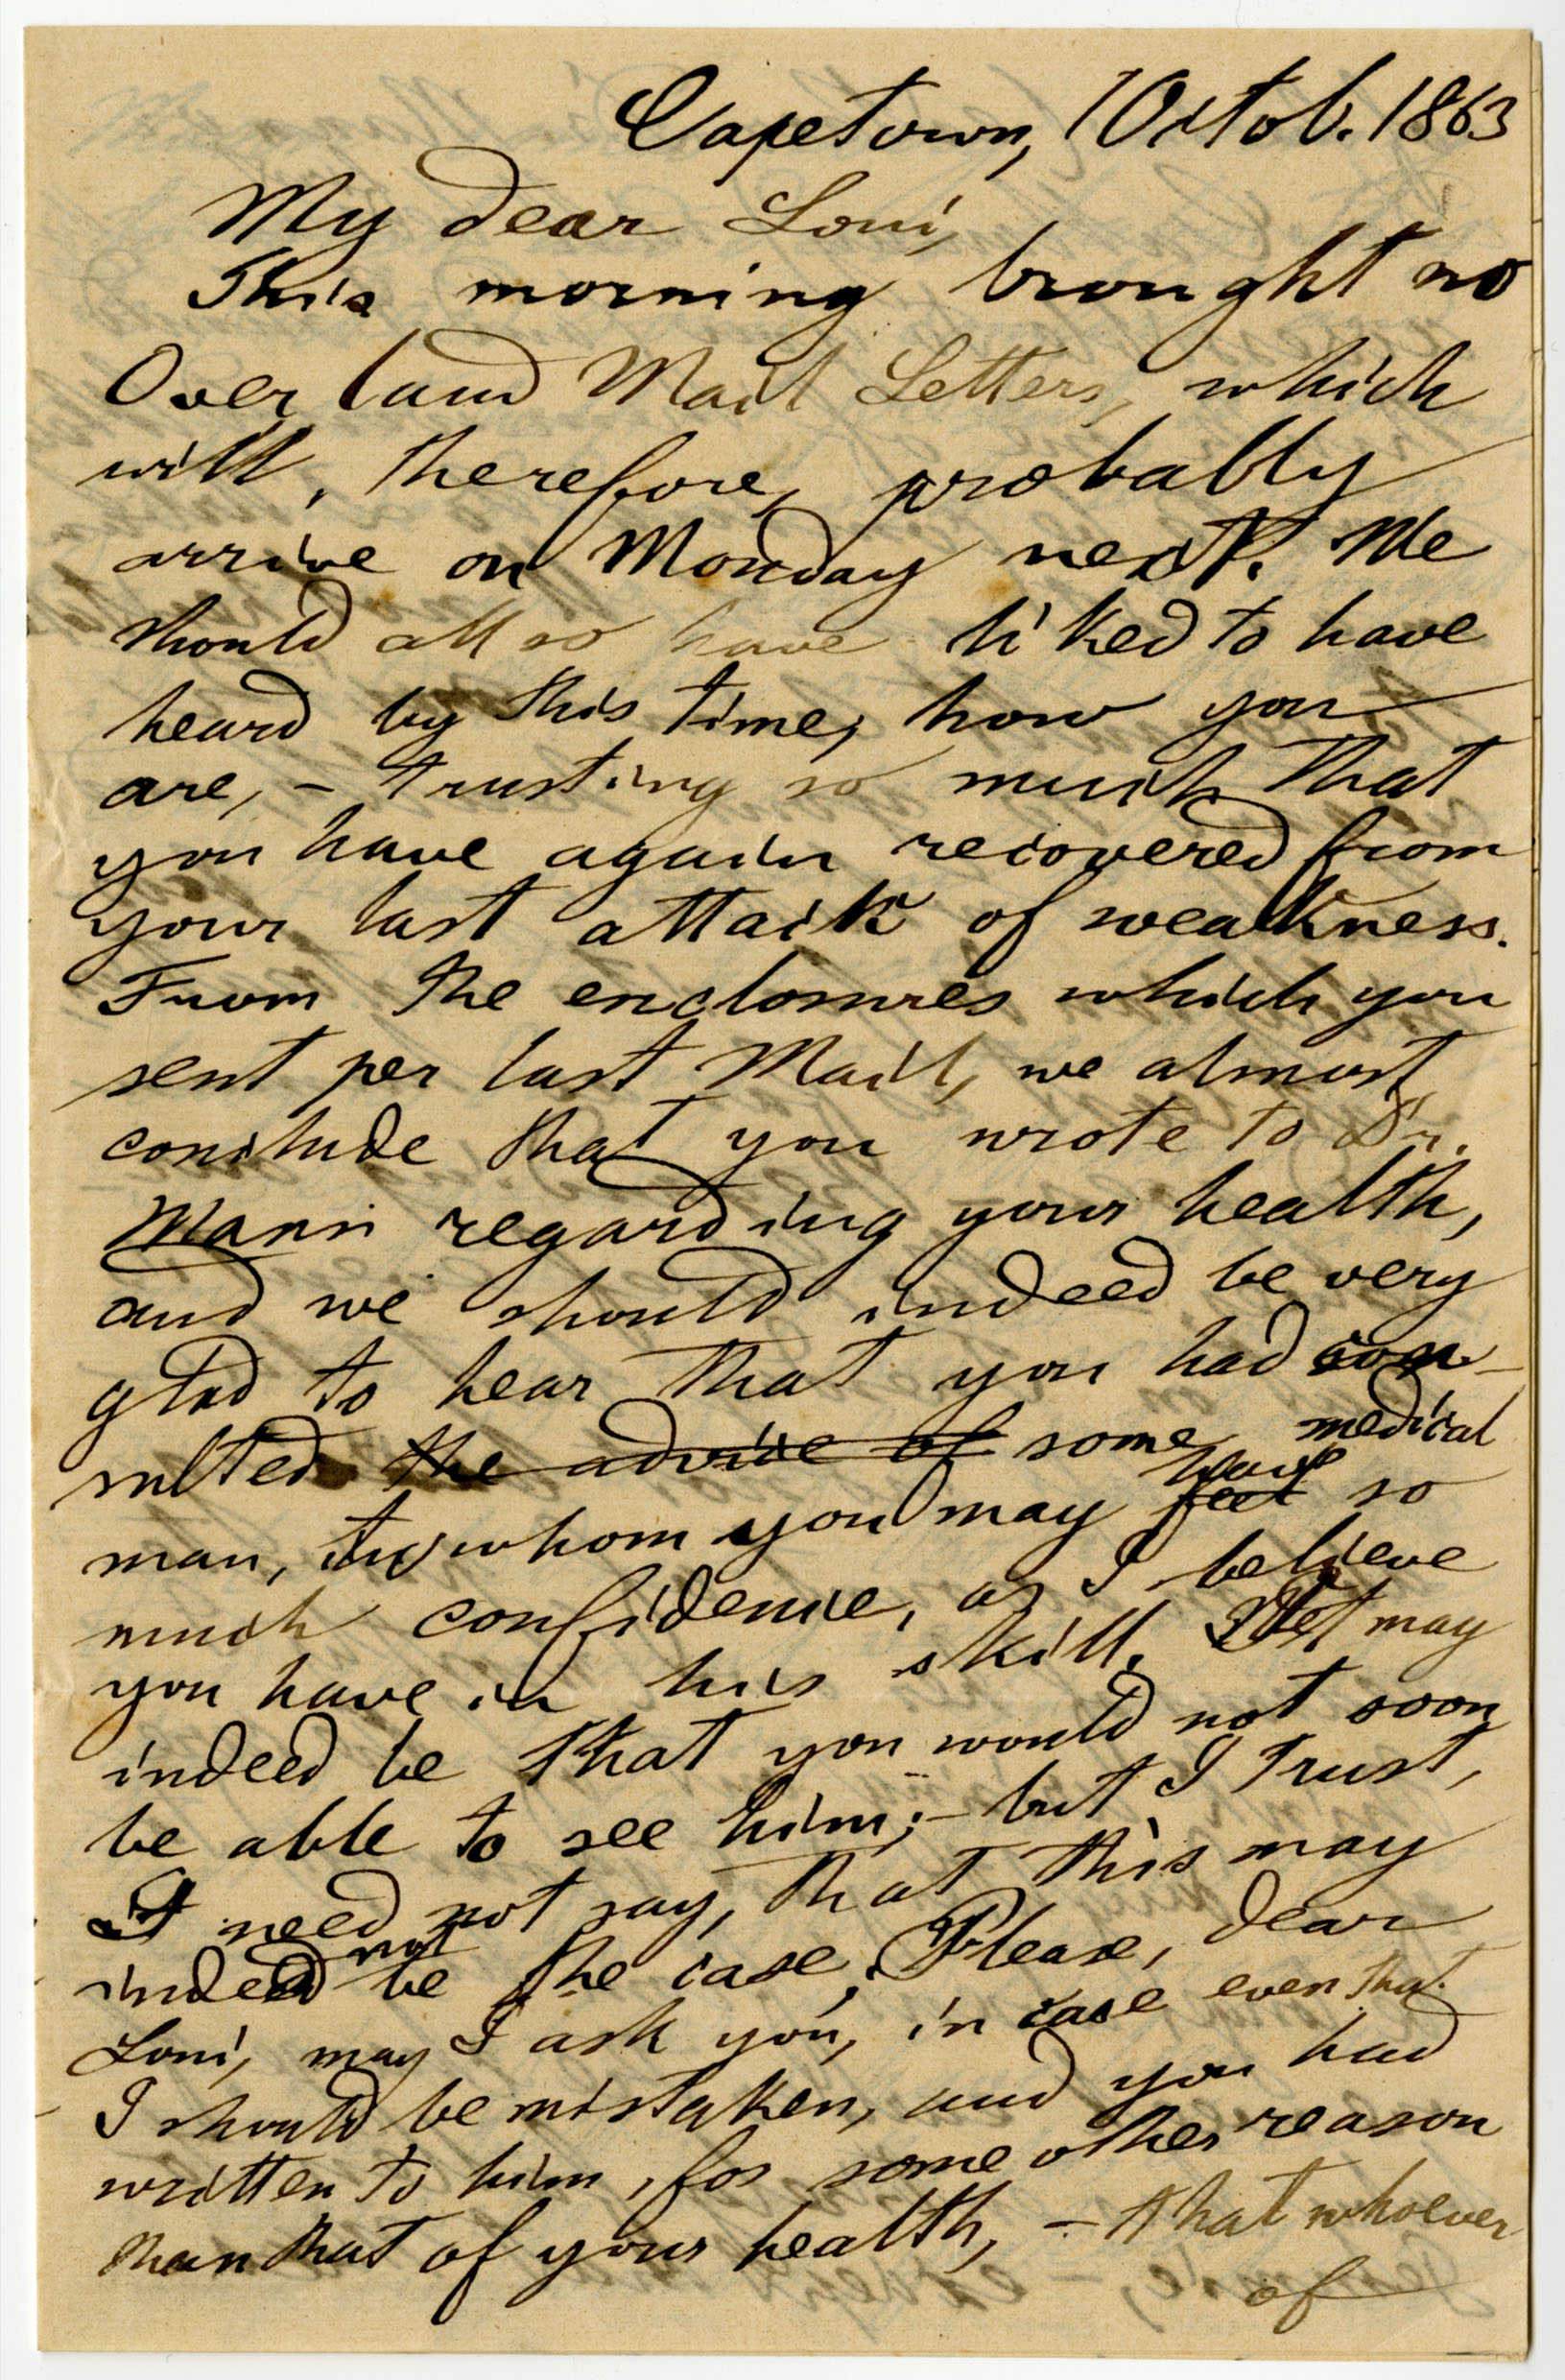 Capetown, 1 Octob. 1863
My dear Loui,
This morning brought no
Over land Mail Letters, which
will, therefore, probably
arrive on Monday next. We
should all so have liked to have
heard by this time, how you
are, - trusting so much that
you have again recovered from
your last attack of weakness.
From the enclosures which you
sent per last Mail, we almost
conclude that you wrote to Dr.
Mann regarding your health,
and we should indeed be very
glad to hear that you had con-
sulted the advice of some medical
man, in whom you may feel have so
much confidence, as I believe
you have in his skill. It may
indeed be that you would not soon
be able to see him; - but I trust,
I need not say, that this may
indeed not be the case. Please, dear
Loui, may I ask you, in case even that
I should be mistaken, and you had
written to him, for some other reason
than that of your health, - that whoever
of